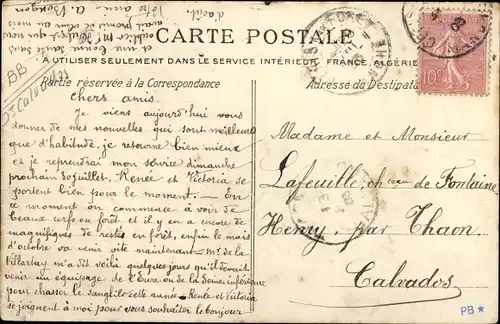 d'août.
et une bonne santé dans
CARTE POSTALE
A UTILISER SEULEMENT DANS LE SERVICE INTÉRIEUR FRANCE, ALGÉRIE
Partie réservée à la Correspondance
Adresse du Destinata
10
BB
Calvados
Chers amis.
Je viens aujourd'hui vous
donner de mes nouvelles qui sont meilleures
que d'habitude, je retourne bien mieux
et je reprendrai mon service dimanche
prochain 30 juillet, Renée et Victoria se
portent bien pour le moment. — En
ce moment on commence à voir de
beaux cerfs en forêt et il y en a encore de
magnifiques de restés en forêt, enfin le mois
d'octobre va venir vite maintenant. Mr de la
Villartay m'a dit voilà quelques jours qu'il devait
venir un équipage de l'Eure ou de la Seine inférieure
pour chasser le sanglier cette année. Renée et Victoria
se joignent à moi pour vous souhaiter le bonjour
Madame et Monsieur
Lafeuille, ch de Fontaine
Henry, par Thaon
Calvados
PB